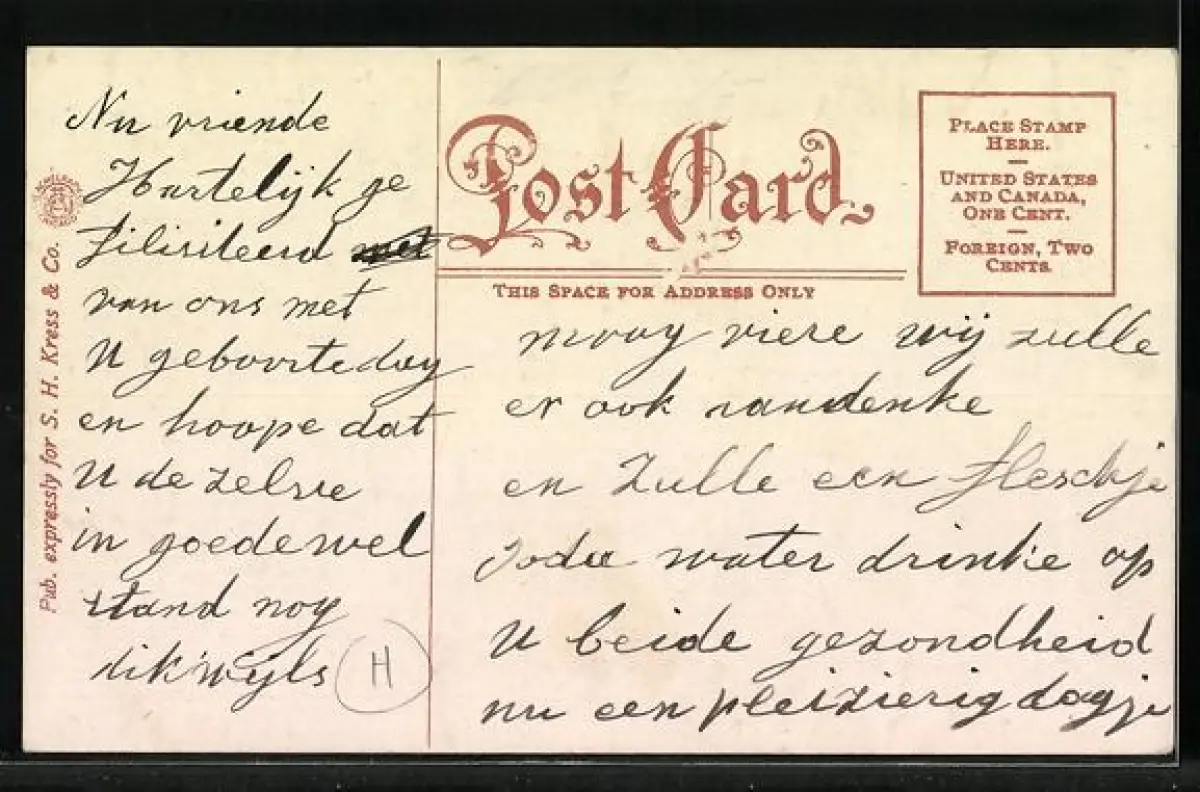 Nu vriende
Hartelijk ge
filisiteerd met
van ons met
U geboortedag
en hoope dat
U de zelve
in goede wel
stand nog
dikwijls
H
Pub. expressly for S. H. Kress & Co.
Post Card.
THIS SPACE FOR ADDRESS ONLY
PLACE STAMP
HERE.
UNITED STATES
AND CANADA,
ONE CENT.
FOREIGN, TWO
CENTS.
mooy viere wij zulle
er ook aandenke
en Zulle een fleschje
soda water drinke op
U beide gezondheid
nu een pleizierig dagje